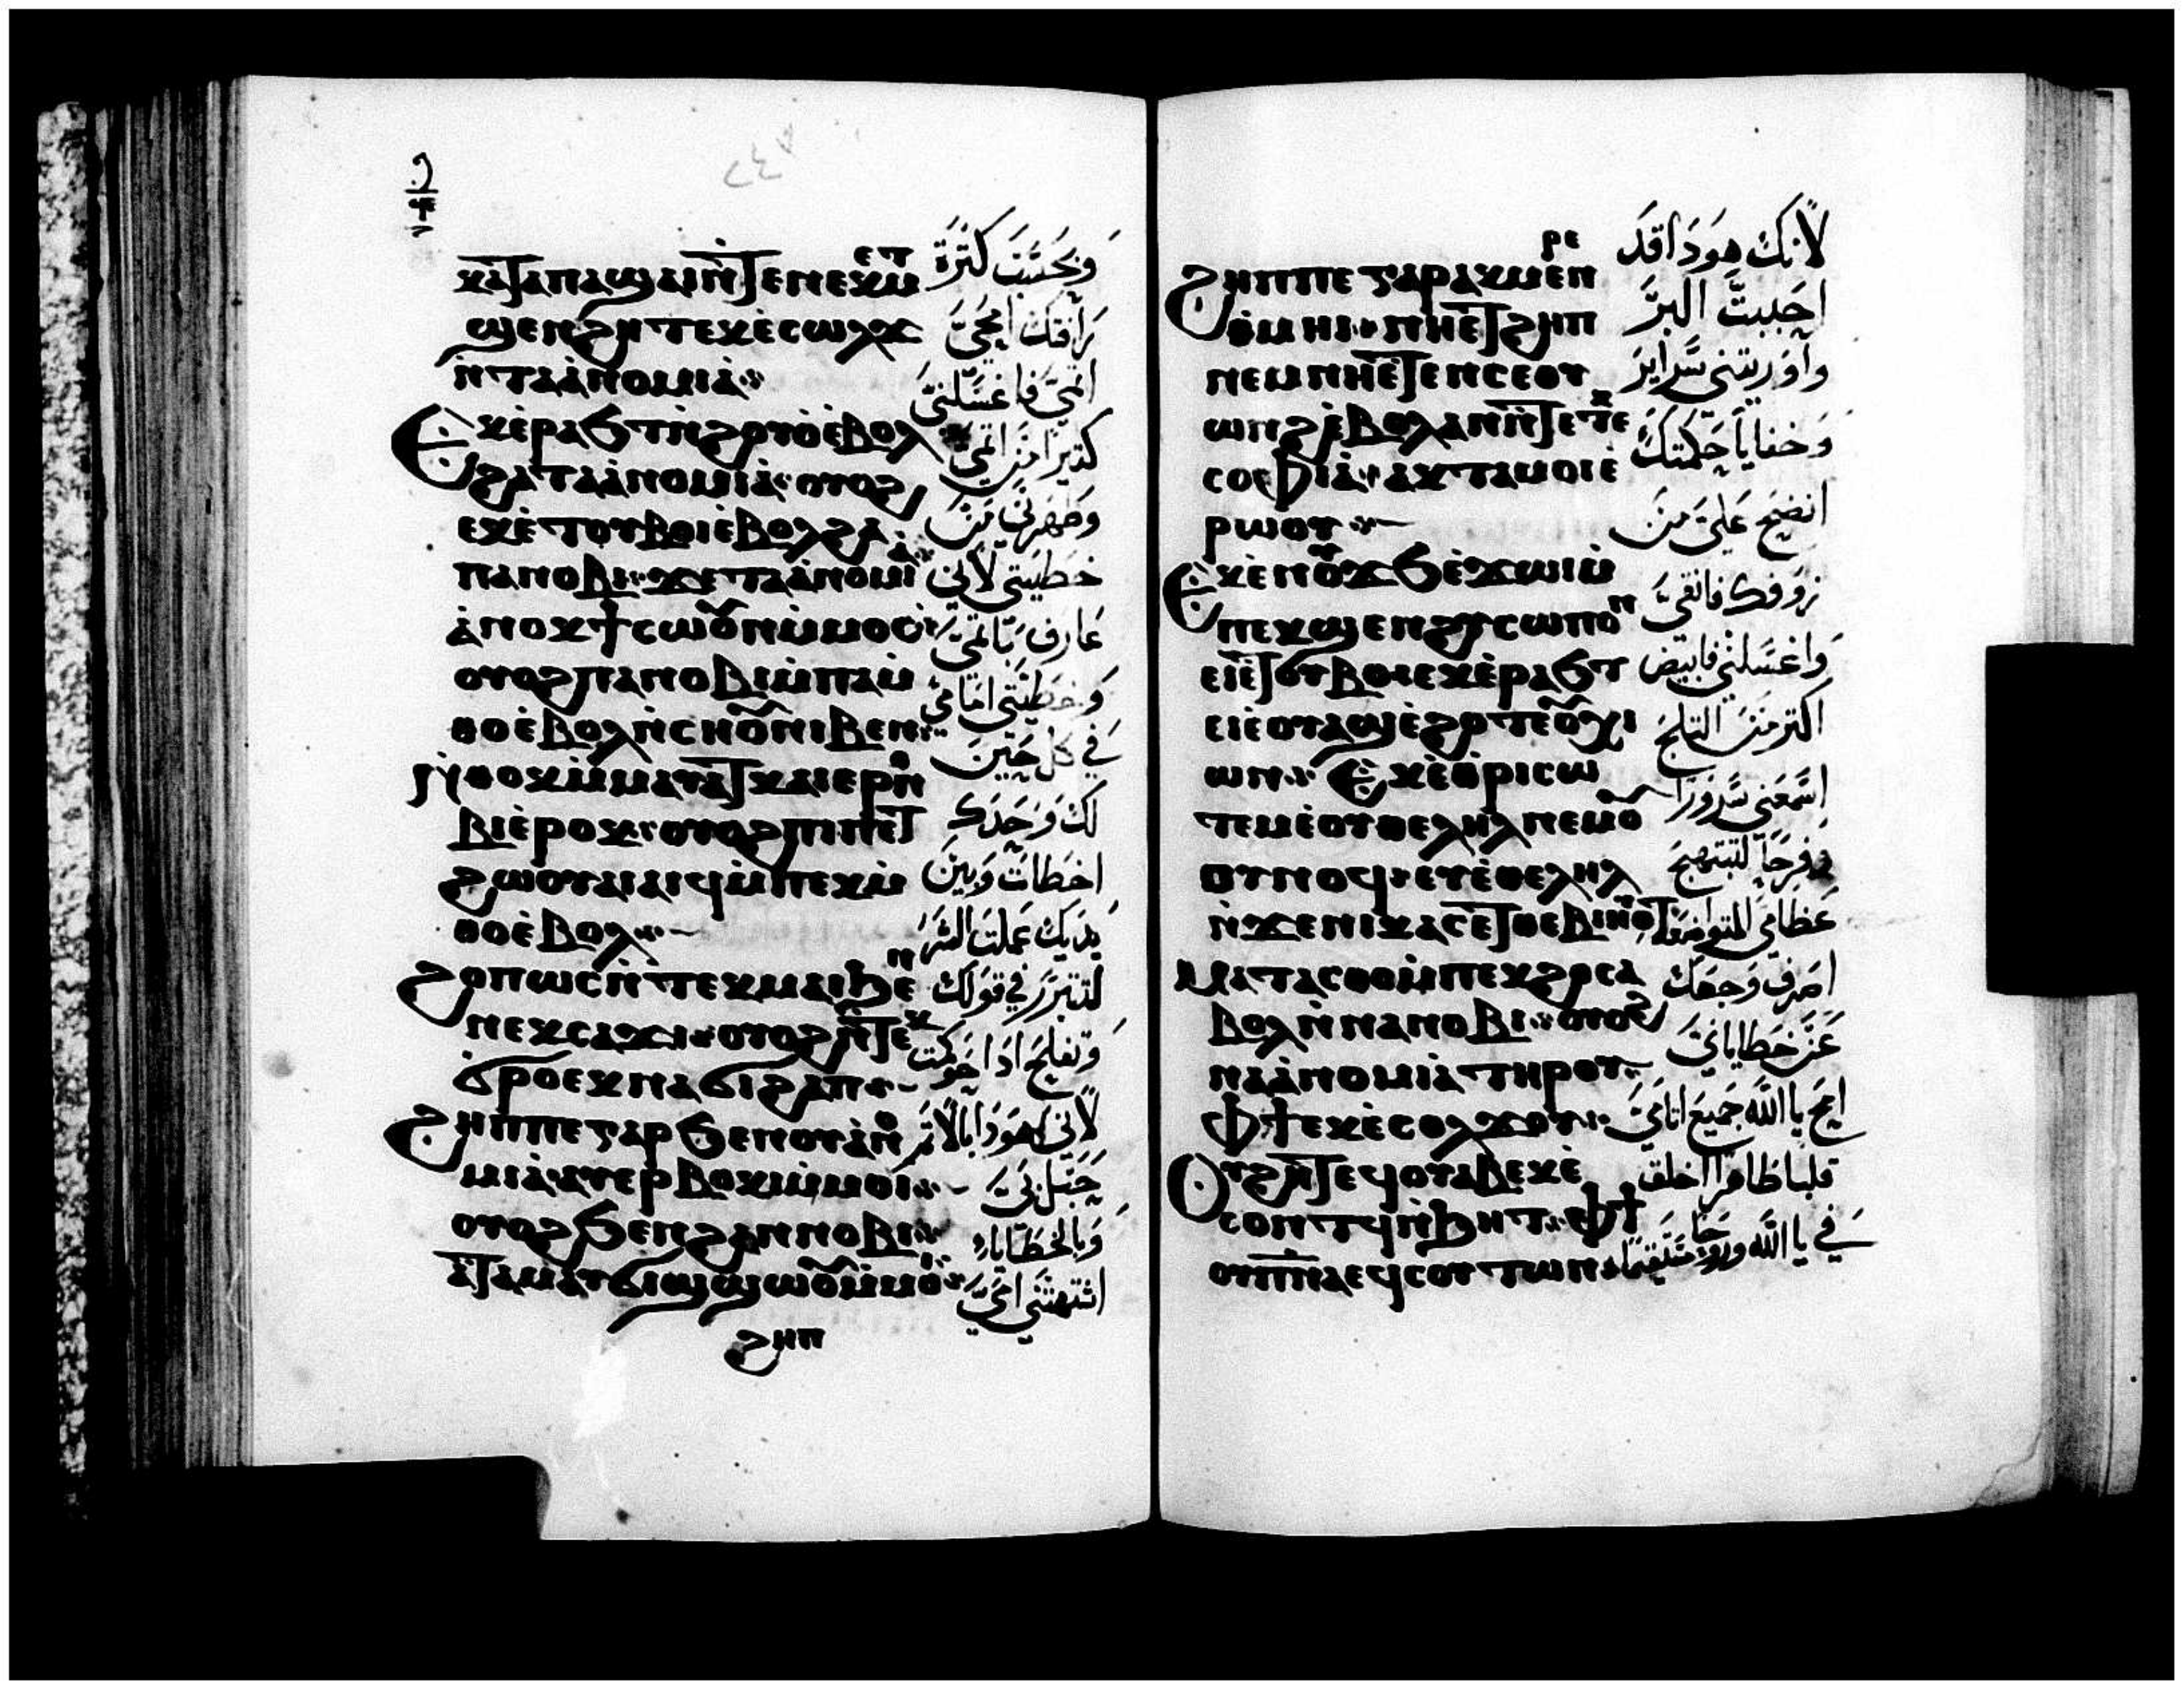 ⲕⲁⲧⲁⲡⲁϣⲁⲓⲛ̀ⲧⲉⲛⲉⲕⲙⲉⲧ
ϣⲉⲛϩⲏⲧ ⲉⲕⲉ̀ⲥⲱⲗϫ
ⲛ̀ⲧⲁⲁ̀ⲛⲟⲙⲓⲁ̀
Ⲉⲕⲉ̀ⲣⲁϧⲧ ⲛ̀ϩⲟⲩⲟ̀ ⲉ̀ⲃⲟⲗ
ϩⲁⲧⲁⲁ̀ⲛⲟⲙⲓⲁ̀ ⲟⲩⲟϩ
ⲉⲕⲉ̀ⲧⲟⲩⲃⲟⲓ ⲉ̀ⲃⲟⲗϩⲁ
ⲡⲁⲛⲟⲃⲓ ϫⲉ ⲧⲁⲁ̀ⲛⲟⲙⲓⲁ̀
ⲁ̀ⲛⲟⲕ ϯⲥⲱⲟⲩⲛ ⲙ̀ⲙⲟⲥ
ⲟⲩⲟϩ ⲡⲁⲛⲟⲃⲓ ⲙ̀ⲡⲁⲙ̀
ⲑⲟ ⲉ̀ⲃⲟⲗ ⲛ̀ⲥⲏⲟⲩ ⲛⲓⲃⲉⲛ
ⲛ̀ⲑⲟⲕ ⲙ̀ⲙⲁⲩⲁⲧⲕ ⲁⲓⲉⲣⲛⲟ
ⲃⲓ ⲉ̀ⲣⲟⲕ ⲟⲩⲟϩ ⲡⲓⲡⲉⲧ
ϩⲱⲟⲩ ⲁⲓⲁⲓϥ ⲙ̀ⲡⲉⲕⲙ̀
ⲑⲟ ⲉ̀ⲃⲟⲗ
Ϩⲟⲡⲱⲥ ⲛ̀ⲧⲉⲕⲙⲁⲓ ϧⲉⲛ
ⲛⲉⲕⲥⲁϫⲓ ⲟⲩⲟϩ ⲛ̀ⲧⲉⲕ
ϭⲣⲟ ⲉⲕⲛⲁϭⲓϩⲁⲡ
Ϩⲏⲡⲡⲉ ⲅⲁⲣ ϧⲉⲛ ⲟⲩⲁ̀ⲛⲟ
ⲙⲓⲁ̀ ⲁⲩⲉⲣⲃⲟⲕⲓ ⲙ̀ⲙⲟⲓ
ⲟⲩⲟϩ ϧⲉⲛ ϩⲁⲛⲛⲟⲃⲓ
ⲁ̀ⲧⲁⲙⲁⲩ ϭⲓϣϣⲱⲟⲩ ⲙ̀ⲙⲟⲓ
ϩⲏⲡ
وبحسب كثرة
رافتك امحي
اثمي فاغسلني
كثيرا من اثمي
وطهرني من
خطيتي لاني
عارف باثمي
وخطيتي امامي
في كل حين
لك وحدك
اخطات وبين
يديك عملت الشر
لتتبرر في قولك
وتفلج اذا حوكمت
لاني هوذا بالاثم
حبل بي
وبالخطايا
اشتهتني امي
Ϩⲏⲡⲡⲉ ⲅⲁⲣ ⲁⲕⲙⲉⲛⲣⲉ
ⲑⲙⲏⲓ ⲛⲏⲉ̀ⲧϩⲏⲡ
ⲛⲉⲙ ⲛⲏⲉ̀ⲧⲉⲛⲥⲉⲟⲩ
ⲱⲛϩ ⲉ̀ⲃⲟⲗ ⲁⲛ ⲛ̀ⲧⲉ ⲧⲉⲕ
ⲥⲟⲫⲓⲁ̀ ⲁⲕⲧⲁⲙⲟⲓ ⲉ̀
ⲣⲱⲟⲩ
Ⲉⲕⲉ̀ⲛⲟⲩϫϧ ⲉ̀ϫⲱⲓ ⲙ̀
ⲡⲉⲕϣⲉⲛϩⲩⲥⲱⲡⲟⲛ
ⲉⲓⲉ̀ⲧⲟⲩⲃⲟ ⲉⲕⲉ̀ⲣⲁϧⲧ
ⲉⲓⲉ̀ⲟⲩⲃⲁϣ ⲉ̀ϩⲟⲧⲉ ⲟⲩⲭⲓ
ⲱⲛ Ⲉⲕⲉ̀ⲑⲣⲓⲥⲱ
ⲧⲉⲙ ⲉ̀ⲟⲩⲑⲉⲗⲏⲗ ⲛⲉⲙ ⲟⲩ
ⲟⲩⲛⲟϥ ⲉⲩⲉ̀ⲑⲉⲗⲏⲗ
ⲛ̀ϫⲉ ⲛⲓⲕⲁⲥ ⲉⲧⲑⲉⲃⲓⲏⲟⲩⲧ
Ⲙⲁⲧⲁⲥⲑⲟ ⲙ̀ⲡⲉⲕϩⲟ ⲥⲁ
ⲃⲟⲗ ⲛ̀ⲛⲁⲛⲟⲃⲓ ⲟⲩⲟϩ
ⲛⲁⲁ̀ⲛⲟⲙⲓⲁ̀ ⲧⲏⲣⲟⲩ
Ⲫϯ ⲉⲕⲉ̀ⲥⲟⲗϫⲟⲩ
Ⲟⲩϩⲏⲧ ⲉϥⲟⲩⲁⲃ ⲉⲕⲉ̀
ⲥⲟⲛⲧϥ ⲛ̀ϧⲏⲧ ⲫϯ
ⲟⲩⲡ̅ⲛ̅ⲁ̅ ⲉϥⲥⲟⲩⲧⲱⲛ
لانك هوذا قد
احببت البر
واوريتني سراير
وخفايا حكمتك
انضح علي من
زوفك فانقي
واغسلني فابيض
اكثر من الثلج
اسمعني سرورا
وفرحا لتبتهج
عظامي المتواضعة
اصرف وجهك
عن خطاياي
امح يا الله جميع اثامي
قلبا طاهرا اخلق
في يا الله وروحا